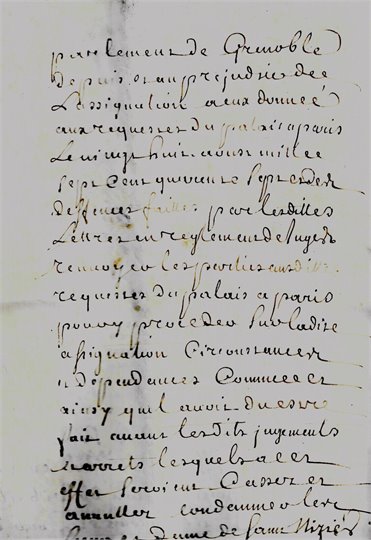 parlement de Grenoble
depuis et au prejudice de
Lassignation a eux donneé
aux requestes du palais a paris
Le vingt huit aoust mil
sept Cent quarente sept et des
deffences faittes par lesdittes
Lettres en reglement de Juges
renvoyer les parties ausdittes
requestes du palais a paris
pour y proceder sur ladite
assignation Circonstances et
Dependances Comme et
ainsy quil avoit du estre
fait avant lesdits jugements
et arrets lesquels a cet
effet seroient Casser et
annuller condamner les
Sieur et Dame de saint Nizier